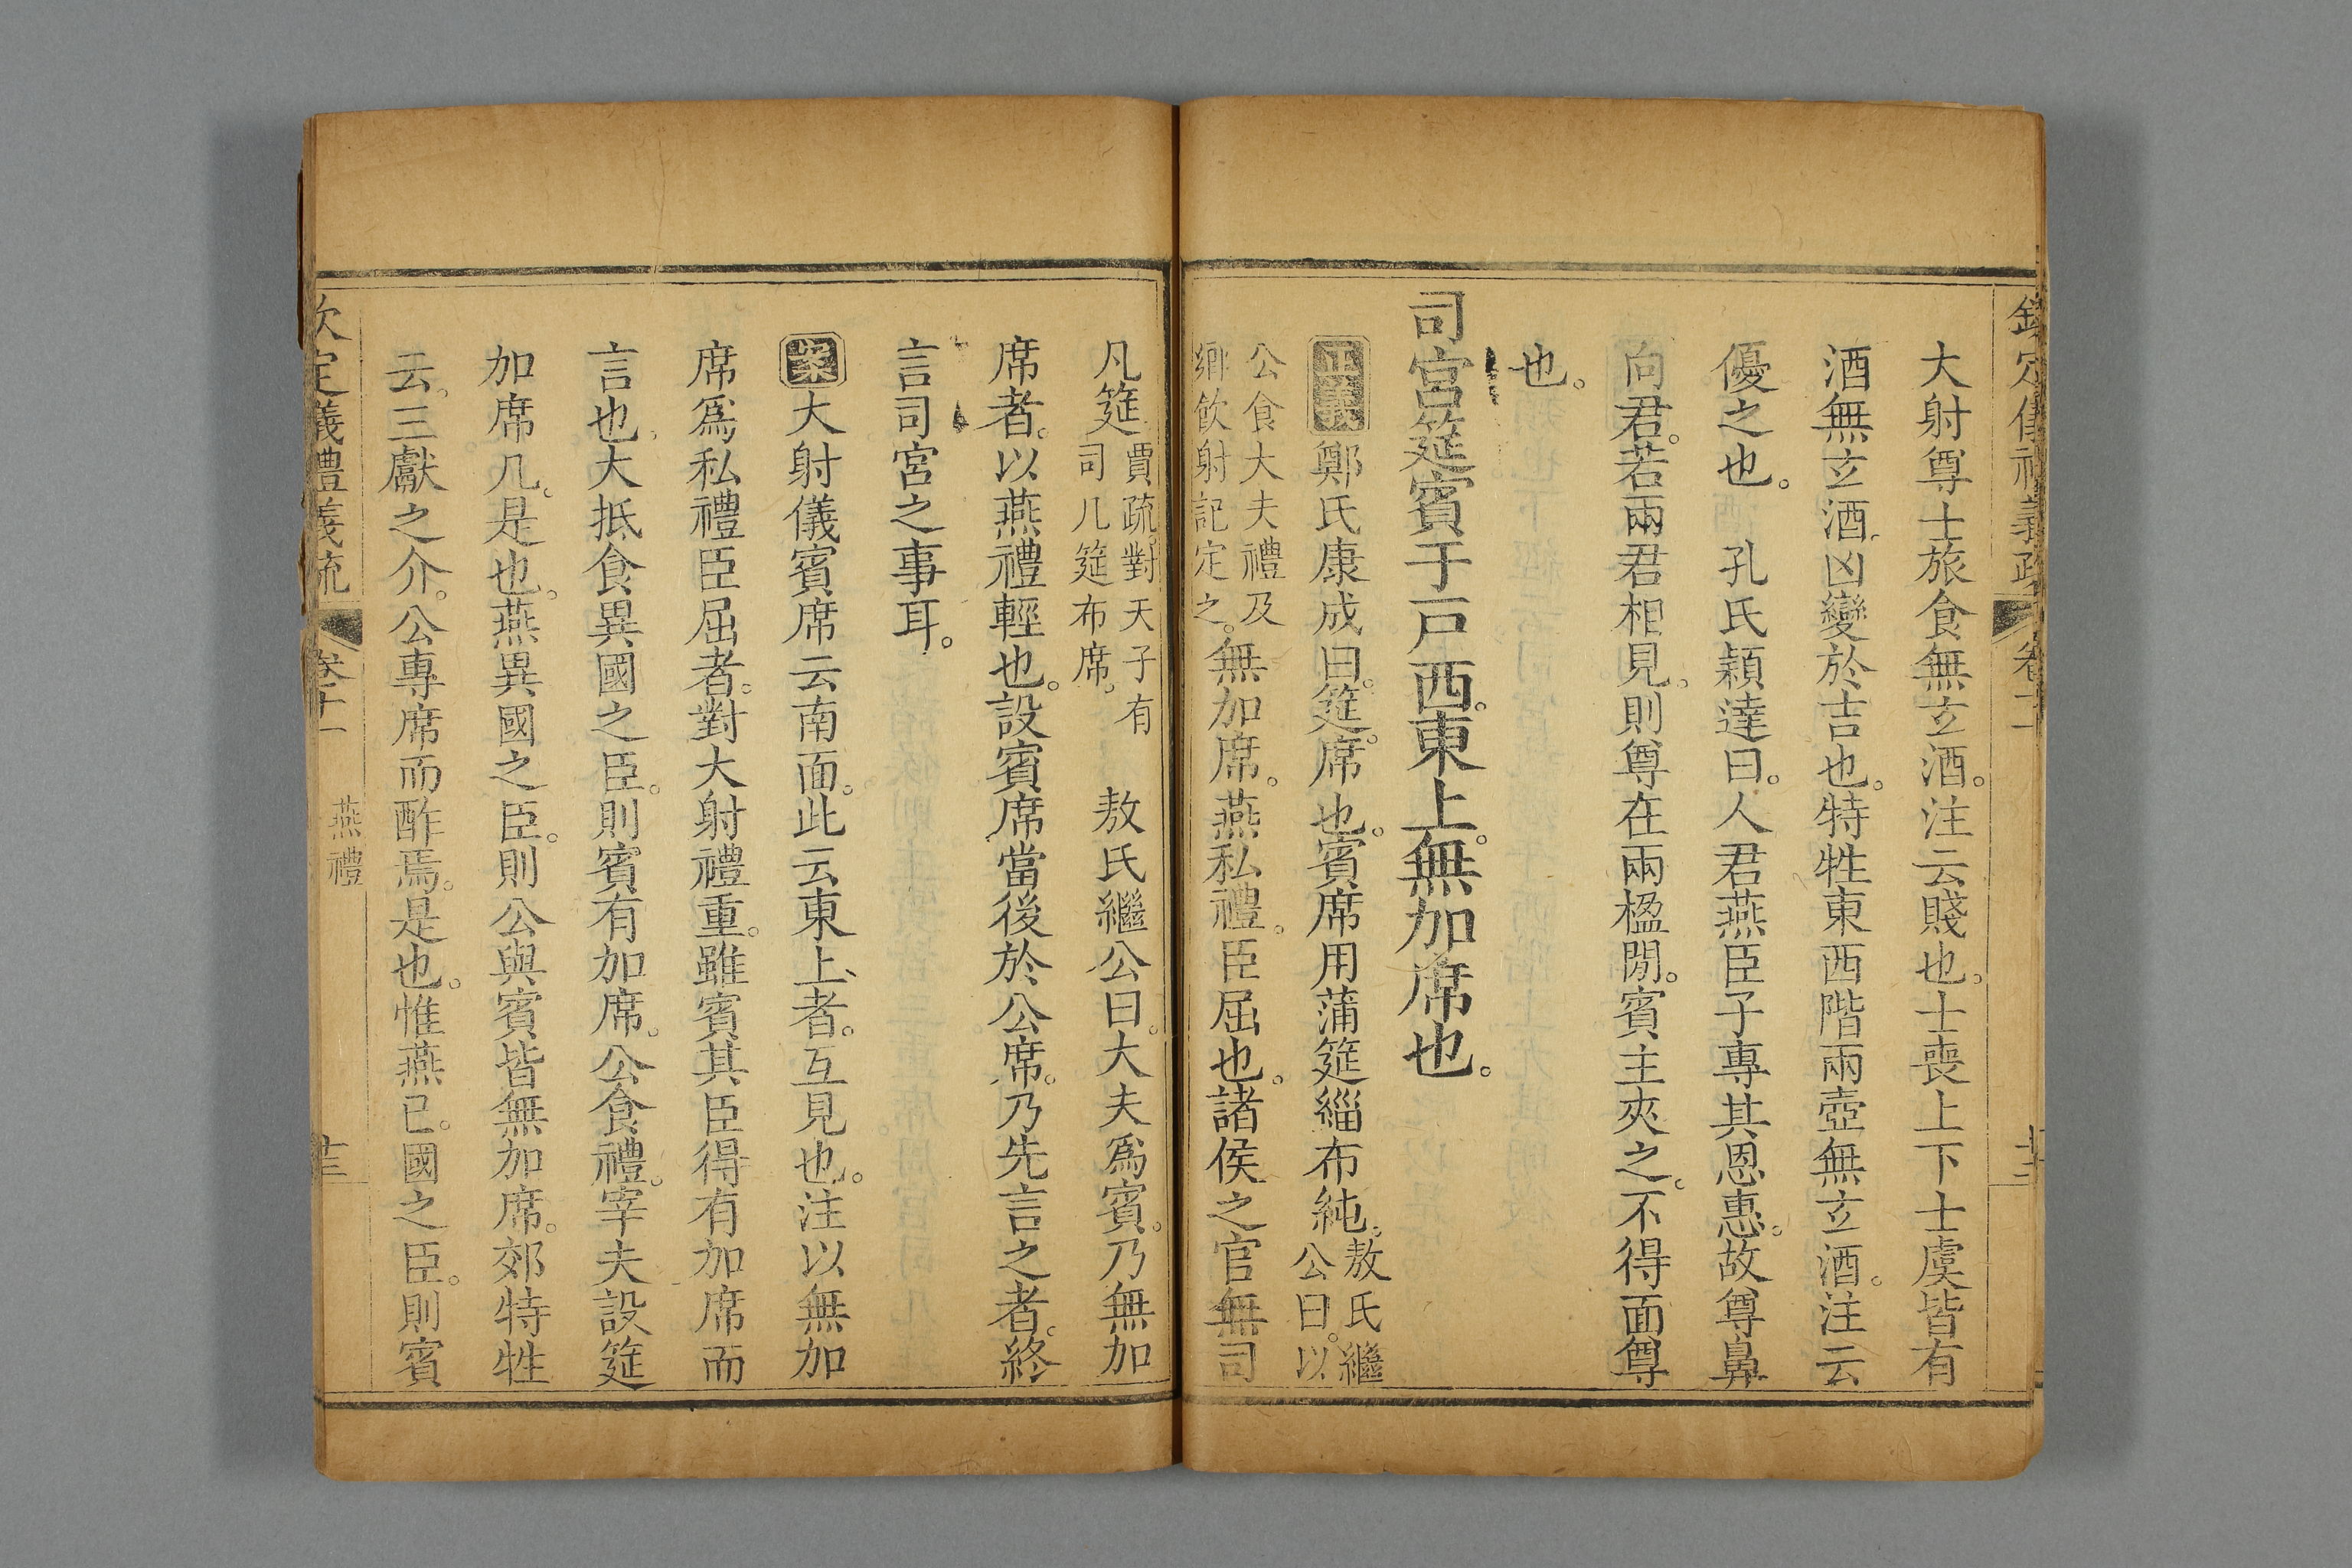 大射尊士旅食無玄酒。注云賤也。士喪上下士虞皆有
酒無玄酒。凶變於吉也。特牲東西階兩壺無玄酒。注云
優之也。孔氏穎達曰。人君燕臣子專其恩惠。故尊鼻
向君。若兩君相見。則尊在兩楹閒。賓主夾之。不得面尊
也。
司宮筵賓于戶西。東上。無加席也。
正義鄭氏康成曰。筵。席也。賓席用蒲筵緇布純。敖氏繼公曰。以
公食大夫禮及鄉飲射記定之。無加席。燕私禮。臣屈也。諸侯之官無司
几筵。賈疏。對天子有司几筵布席。敖氏繼公曰。大夫爲賓。乃無加
席者。以燕禮輕也。設賓席當後於公席。乃先言之者。終
言司宮之事耳。
案大射儀賓席云南面。此云東上者。互見也。注以無加
席爲私禮臣屈者。對大射禮重。雖賓其臣得有加席而
言也。大抵食異國之臣。則賓有加席。公食禮。宰夫設筵
加席几。是也。燕異國之臣。則公與賓皆無加席。郊特牲
云。三獻之介。公專席而酢焉。是也。惟燕己國之臣。則賓
欽定儀禮義疏 卷十一 燕禮